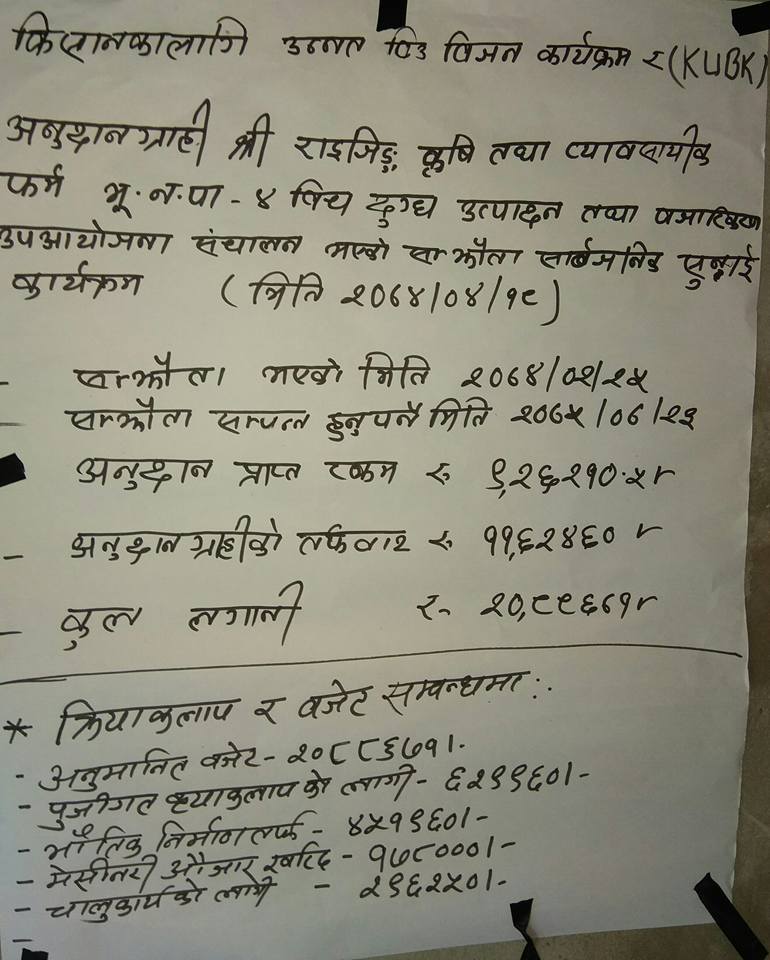 किसानकालागि उन्नत विउ विजन कार्यक्रम र (KUBK)
अनुदानग्राही श्री राइजिङ्ग कृषि तथा व्यावसायीक
फर्म भू.न.पा - ४ विच दुग्ध उत्पादन तथा बजारिकरण
उपआयोजना संचालन भएको सम्झौता सार्वजनिक सुनुवाई
कार्यक्रम ( मिति २०७४/०४/१९ )
- सम्झौता भएको मिति २०७४/०२/२५
- सम्झौता सम्पन्न हुनुपर्ने मिति २०७५/०७/२३
अनुदान प्राप्त रकम रु ९,२६२१०.५
- अनुदान ग्राहीको तर्फवाट रु ११,६२४६०
- कुल लगानी रु
* क्रियाकलाप र वजेट सम्वन्धमा :.
- अनुमानित वजेट - २०८८६७१।-
- पुजीगत क्रयाकलाप को लागी - ६२९९६०।-
- भौतिक निर्माण तर्फ - ४५१९६०।-
- मेसीनरी औजार खरिद - १७८०००।-
- चालुकार्य को लागी - २९६२५०।-
-